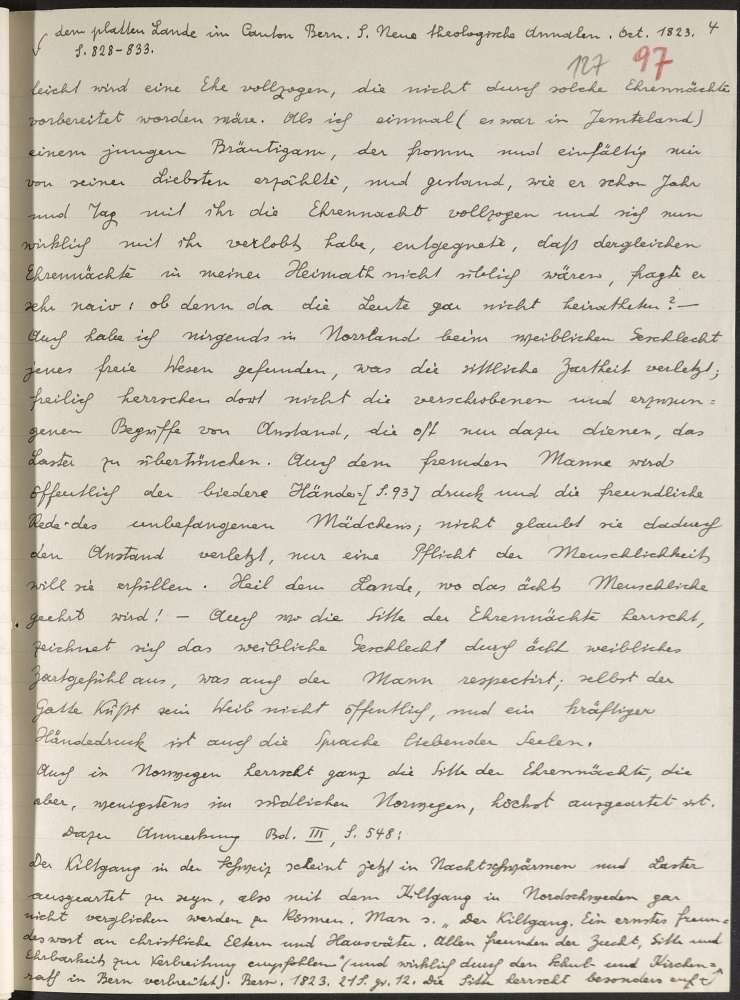 dem platten Lande im Canton Bern. S. Neue theologische Annalen. Oct. 1823. 4
S. 828-833.
127 97
leicht wird eine Ehe vollzogen, die nicht durch solche Ehrennächte
vorbereitet worden wäre. Als ich einmal (es war in Jemteland)
einem jungen Bräutigam, der fromm und einfältig mir
von seiner Liebsten erzählte, und gestand, wie er schon Jahr
und Tag mit ihr die Ehrennacht vollzogen und sich nun
wirklich mit ihr verlobt habe, entgegnete, daß dergleichen
Ehrennächte in meiner Heimath nicht üblich wären, fragte er
sehr naiv: ob denn da die Leute gar nicht heiratheten? —
Auch habe ich nirgends in Norrland beim weiblichen Geschlecht
jenes freie Wesen gefunden, was die sittliche Zartheit verletzt;
freilich herrschen dort nicht die verschrobenen und erzwun=
genen Begriffe von Anstand, die oft nur dazu dienen, das
Laster zu übertünchen. Auch dem fremden Manne wird
öffentlich der biedere Hände=[S. 93] druck und die freundliche
Rede des unbefangenen Mädchens; nicht glaubt sie dadurch
den Anstand verletzt, nur eine Pflicht der Menschlichkeit
will sie erfüllen. Heil dem Lande, wo das ächt Menschliche
geehrt wird! — Auch wo die Sitte der Ehrennächte herrscht,
zeichnet sich das weibliche Geschlecht durch ächt weibliches
Zartgefühl aus, was auch der Mann respectirt; selbst der
Gatte küßt sein Weib nicht öffentlich, und ein kräftiger
Händedruck ist auch die Sprache liebender Seelen.
Auch in Norwegen herrscht ganz die Sitte der Ehrennächte, die
aber, wenigstens im südlichen Norwegen, höchst ausgeartet ist.
Dazu Anmerkung Bd. III, S. 548:
Der Kiltgang in der Schweiz scheint jetzt in Nachtschwärmen und Laster
ausgeartet zu seyn, also mit dem Kiltgang in Nordschweden gar
nicht verglichen werden zu können. Man s. „Der Kiltgang. Ein ernstes Freun=
deswort an christliche Eltern und Hausväter. Allen Freunden der Zucht, Sitte und
Ehrbarkeit zur Verbreitung empfohlen" (und wirklich durch den Schul- und Kirchen=
rath in Bern verbreitet). Bern. 1823. 21 S. gr. 12. Die Sitte herrscht besonders auf